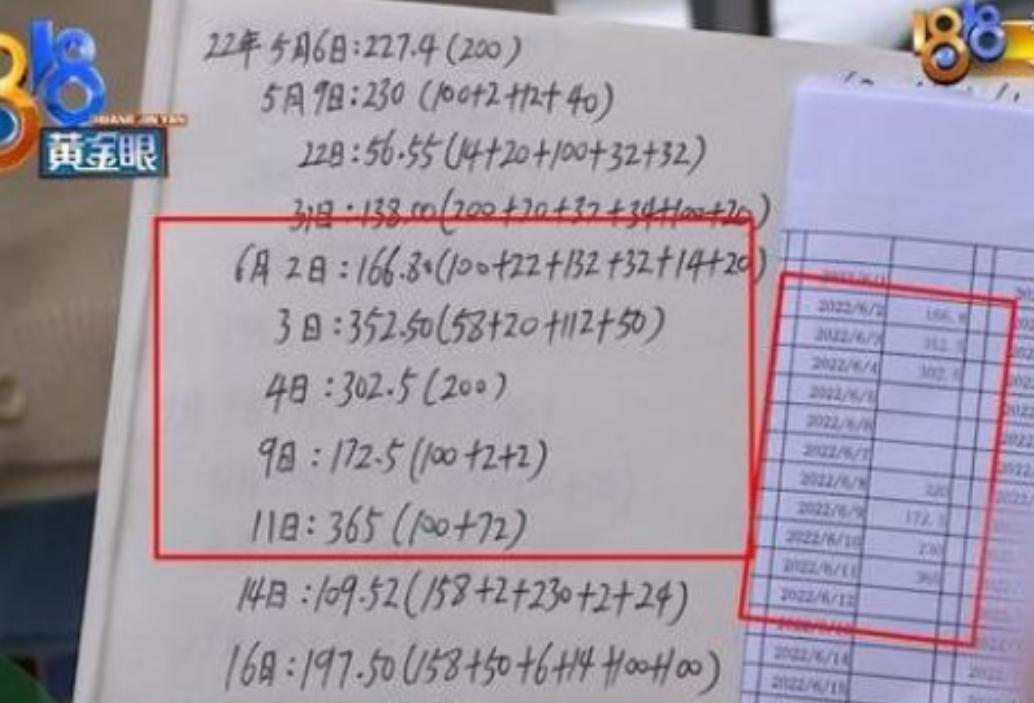 1818
黄金眼
22年5月6日:227.4(200)
5月9日:230(100+2+12+40)
22日:56.55(14+20+100+32+32)
31日:138.00(200+20+32+34+100+20)
6月2日:166.80(100+22+132+32+14+20)
3日:352.50(58+20+112+50)
4日:302.5(200)
9日:172.5(100+2+2)
11日:365(100+72)
14日:109.52(158+2+230+2+24)
16日:197.50(158+50+6+14+100+100)
1818
2022/6/1
2022/6/2 166.8
2022/6/3 352.5
2022/6/4 302.5
2022/6/5
2022/6/6
2022/6/7
2022/6/8 320
2022/6/9 172.5
2022/6/10 230
2022/6/11 365
2022/6/12
2022/6/14
2022/6/15